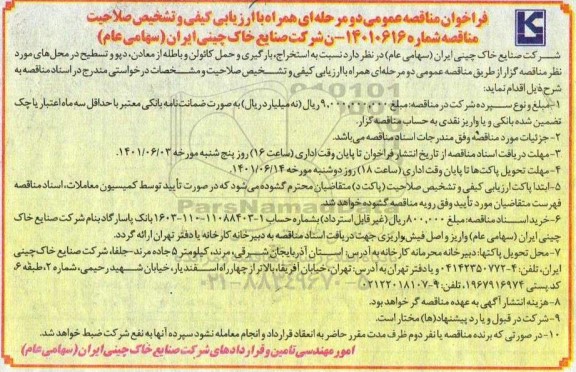 فراخوان مناقصه عمومی دو مرحله‌ای همراه با ارزیابی کیفی و تشخیص صلاحیت
مناقصه شماره ۱۴۰۱۰۶۱۶-ن شرکت صنایع خاک چینی ایران (سهامی عام)
شرکت صنایع خاک چینی ایران (سهامی عام) در نظر دارد نسبت به استخراج، بارگیری و حمل کائولن و باطله از معادن، دپو و تسطیح در محل‌های مورد
نظر مناقصه گزار از طریق مناقصه عمومی دو مرحله‌ای همراه با ارزیابی کیفی و تشخیص صلاحیت و مشخصات درخواستی مندرج در اسناد مناقصه به
شرح ذیل اقدام نماید:
۱-مبلغ و نوع سپرده شرکت در مناقصه: مبلغ ۹.۰۰۰.۰۰۰.۰۰۰ ریال (نه میلیارد ریال) به صورت ضمانت‌نامه بانکی معتبر با حداقل سه ماه اعتبار یا چک
تضمین شده بانکی و یا واریز نقدی به حساب مناقصه گزار.
۲-جزئیات مورد مناقصه وفق مندرجات اسناد مناقصه می‌باشد.
۳-مهلت دریافت اسناد مناقصه از تاریخ انتشار فراخوان تا پایان وقت اداری (ساعت ۱۶) روز پنج شنبه مورخه ۱۴۰۱/۰۶/۰۳.
۴-مهلت تحویل پاکت‌ها تا پایان وقت اداری (ساعت ۱۸) روز دوشنبه مورخه ۱۴۰۱/۰۶/۱۴.
۵-ابتدا پاکت ارزیابی کیفی و تشخیص صلاحیت (پاکت د) متقاضیان محترم گشوده می‌شود که در صورت تأیید توسط کمیسیون معاملات، اسناد مناقصه
فهرست متقاضیان مورد تأیید وفق رویه مناقصه گشوده خواهد شد.
۶-خرید اسناد مناقصه: مبلغ ۸۰۰.۰۰۰ ریال (غیر قابل استرداد) بشماره حساب ۱-۱۱۰۸۸۴۰۳-۱۱۰-۱۶۰۳ بانک پاسارگاد بنام شرکت صنایع خاک
چینی ایران (سهامی عام) واریز و اصل فیش واریزی جهت دریافت اسناد مناقصه به دبیرخانه کارخانه یا دفتر تهران ارائه گردد.
۷-محل تحویل پاکتها: دبیرخانه محرمانه کارخانه به آدرس: استان آذربایجان شرقی، مرند، کیلومتر ۵ جاده مرند-جلفا، شرکت صنایع خاک چینی
ایران، تلفن: ۴-۰۴۱۴۲۳۵۰۷۷۲ و یا دفتر تهران به آدرس: تهران، خیابان آفریقا، بالاتر از چهارراه اسفندیار، خیابان شهید رحیمی، شماره ۲، طبقه ۶،
کد پستی ۱۹۶۷۹۱۶۹۷۴، تلفن: ۹-۰۲۱۲۲۰۱۸۱۰۷
۸-هزینه انتشار آگهی به عهده مناقصه گر خواهد بود.
۹-شرکت در قبول و یا رد پیشنهاد(ها) مختار است.
۱۰-در صورتی که برنده مناقصه یا نفر دوم ظرف مدت مقرر حاضر به انعقاد قرارداد و انجام معامله نشود سپرده آنها به نفع شرکت ضبط خواهد شد.
امور مهندسی تامین و قراردادهای شرکت صنایع خاک چینی ایران (سهامی عام)